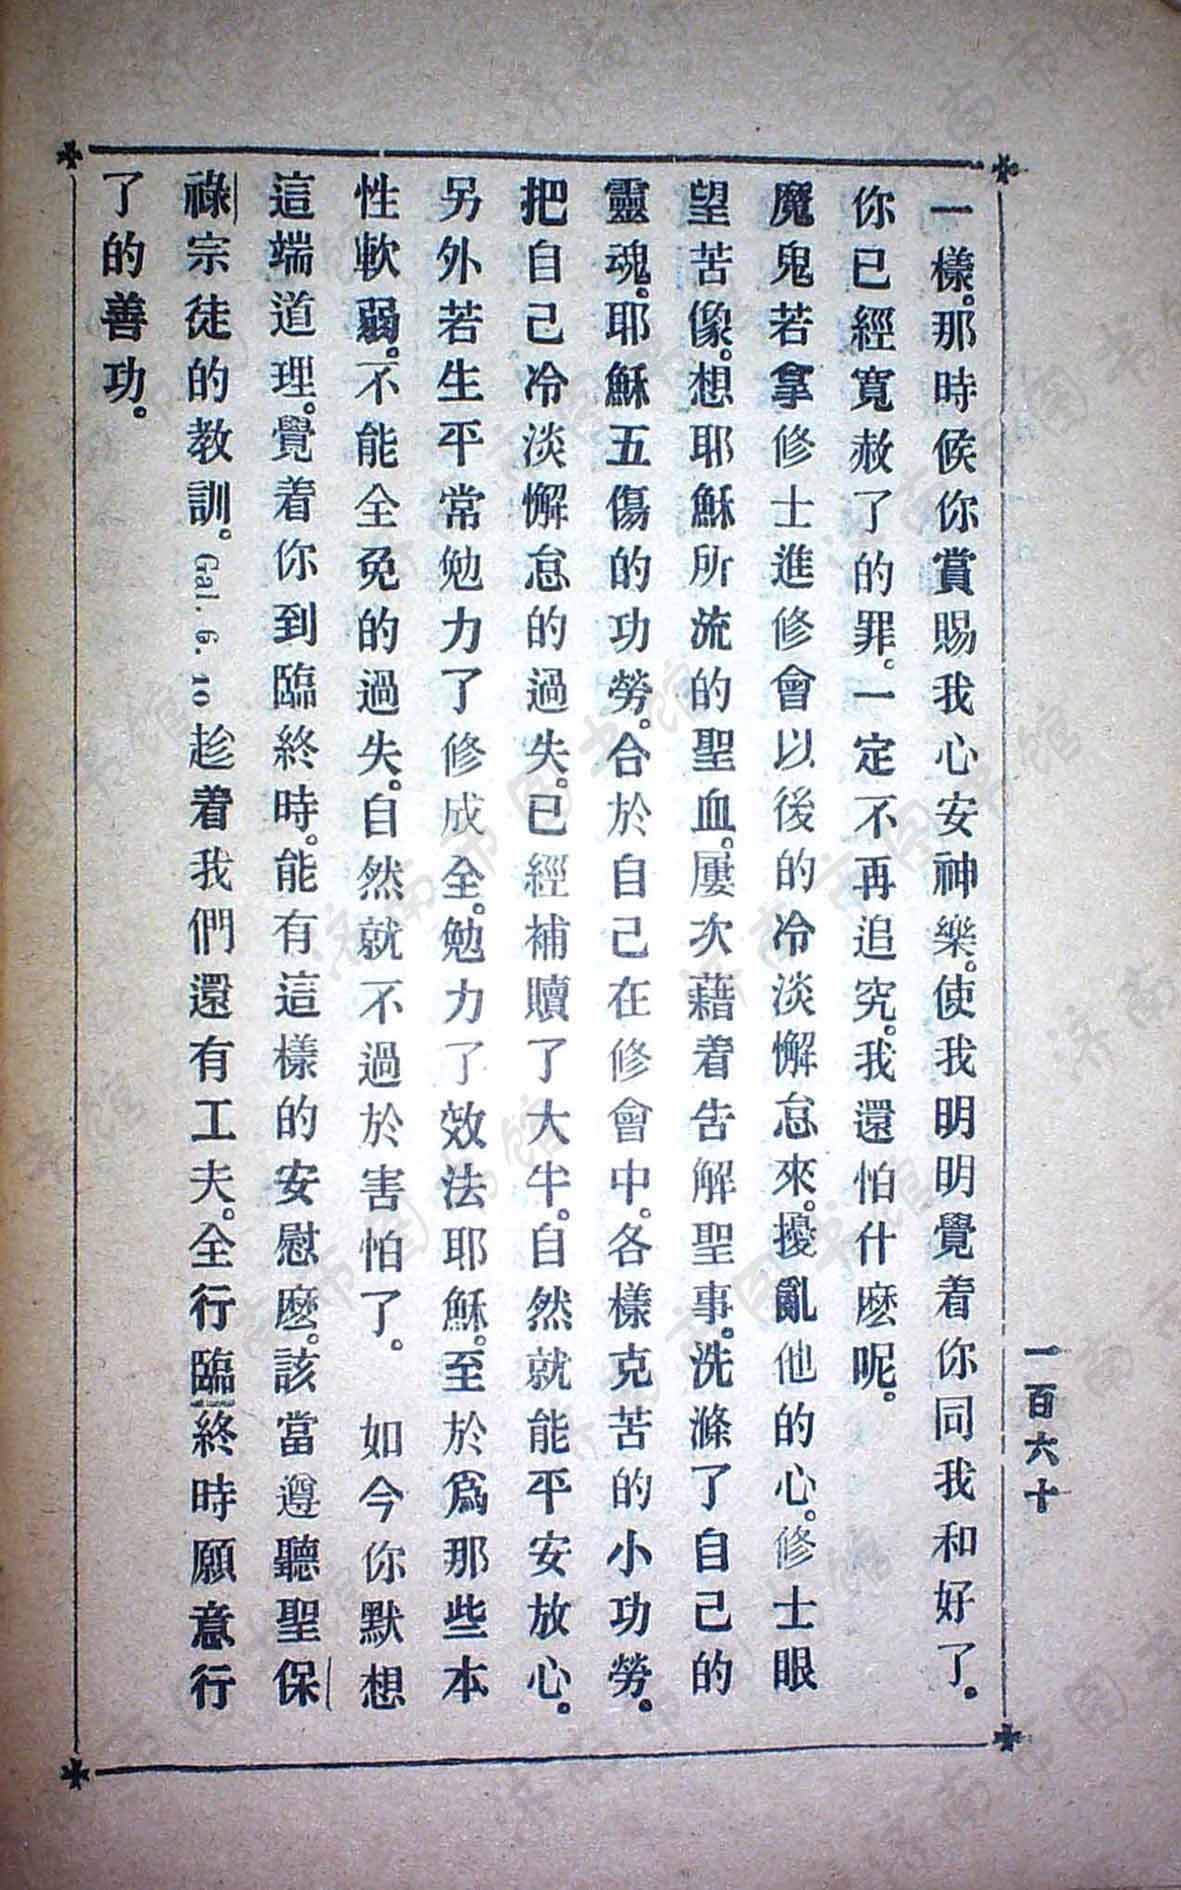 一樣。那時候你賞賜我心安神樂。使我明明覺着你同我和好了。
你已經寬赦了的罪。一定不再追究。我還怕什麽呢。
魔鬼若拿修士進修會以後的冷淡懈怠來。擾亂他的心。修士眼
望苦像。想耶穌所流的聖血。屢次藉着告解聖事。洗滌了自己的
靈魂。耶穌五傷的功勞。合於自己在修會中。各樣克苦的小功勞。
把自己冷淡懈怠的過失。已經補贖了大半。自然就能平安放心。
另外若生平常勉力了修成全。勉力了效法耶穌。至於爲那些本
性軟弱。不能全免的過失。自然就不過於害怕了。　如今你默想
這端道理。覺着你到臨終時。能有這樣的安慰麽。該當遵聽聖保
祿宗徒的教訓。Gal. 6. 10 趁着我們還有工夫。全行臨終時願意行
了的善功。
一百六十